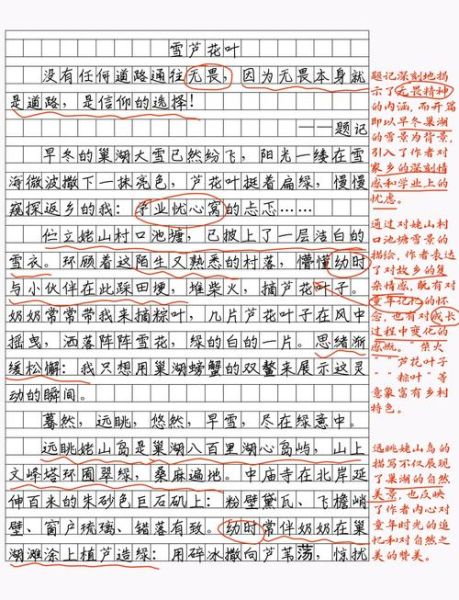 雪芦花叶
没有任何道路通往无畏，因为无畏本身就
是道路，是信仰的选择！
——题记
早冬的巢湖大雪已然纷飞，阳光一缕在雪
海微波撒下一抹亮色，芦花叶挺着扁绿，慢慢
窥探返乡的我：学业忧心窝的忐忑……
伫立姥山村口池塘，已披上了一层洁白的
雪衣。环顾着这陌生又熟悉的村落，懵懂幼时
与小伙伴在此踩田埂，堆柴火，摘芦花叶子。
奶奶常常带我来摘粽叶，几片芦花叶子在风中
摇曳，洒落阵阵雪花，绿的白的一片。思绪渐
缓松懈：我只想用巢湖螃蟹的双螯来展示这灵
动的瞬间。
蓦然，远眺，悠然，早雪，尽在绿意中。
远眺姥山岛是巢湖八百里湖心岛屿，山上
文峰塔环围翠绿，桑麻遍地。中庙寺在北岸延
伸百米的朱砂色巨石矶上：粉壁黛瓦、飞檐峭
壁、窗户琉璃、错落有致。幼时常伴奶奶在巢
湖滩涂上植芦造绿：用碎冰撒向芦苇荡，惊扰
题记深刻地揭
示了无畏精神
的内涵，而开篇
即以早冬巢湖
的雪景为背景，
引入了作者对
家乡的深刻情
感和学业上的
忧虑。
通过对姥山村
口池塘雪景的
描绘，作者表达
了对故乡的复
杂情感，既有对
童年记忆的怀
念，也有对成长
过程中变化的
感慨。"柴火
""芦花叶子
""粽叶"等
意象富有乡村
特色。
远眺姥山岛的
描写不仅展现
了巢湖的自然
美景，也反映
了作者内心对
童年时光的追
忆和对自然之
美的赞美。